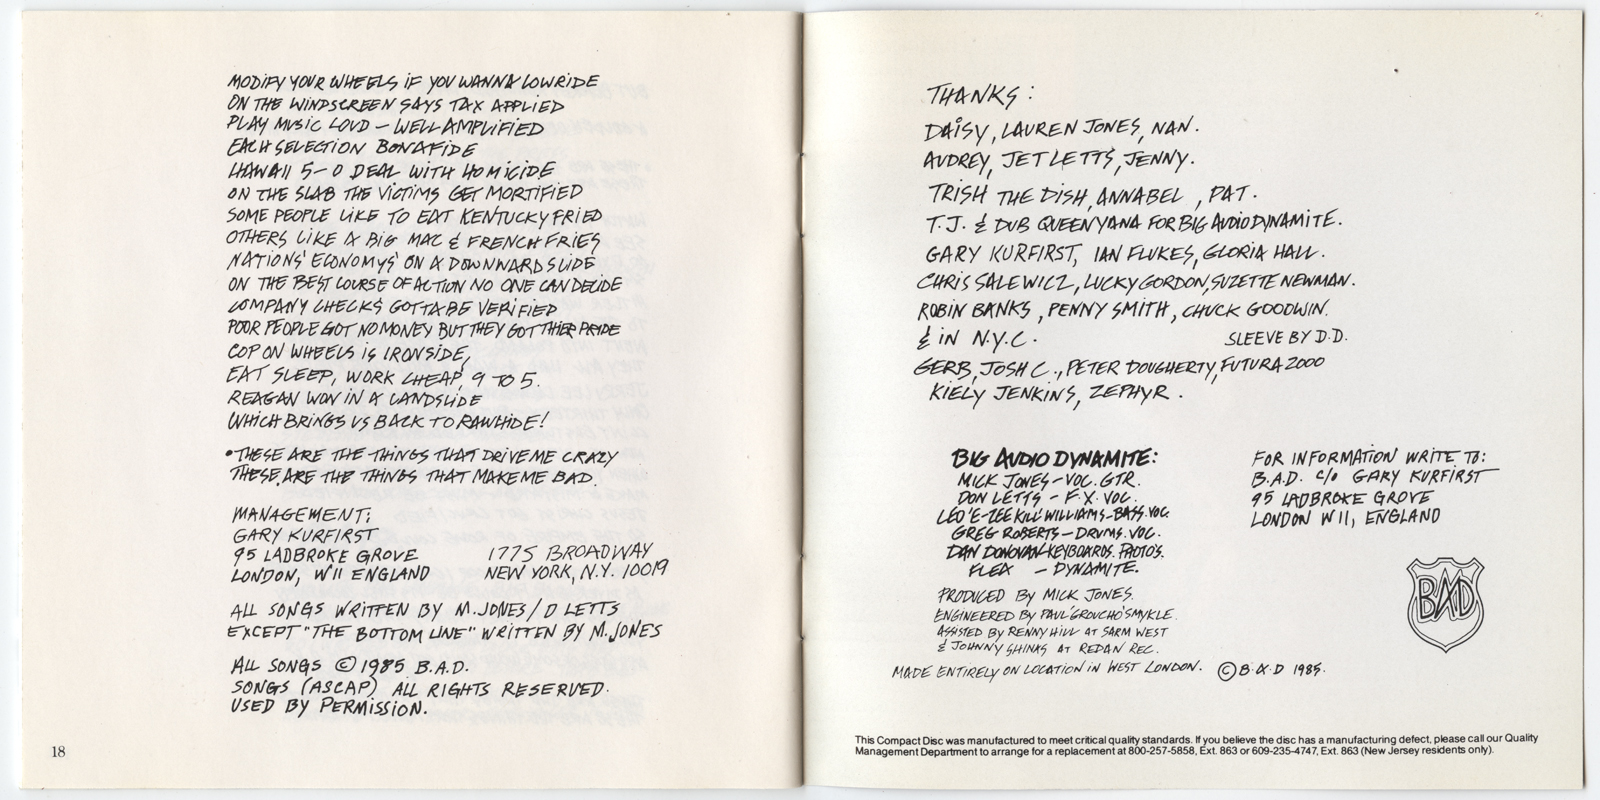 MODIFY YOUR WHEELS IF YOU WANNA LOWRIDE
ON THE WINDSCREEN SAYS TAX APPLIED
PLAY MUSIC LOUD – WELL AMPLIFIED
EACH SELECTION BONAFIDE
HAWAII 5-0 DEAL WITH HOMICIDE
ON THE SLAB THE VICTIMS GET MORTIFIED
SOME PEOPLE LIKE TO EAT KENTUCKY FRIED
OTHERS LIKE A BIG MAC & FRENCH FRIES
NATIONS' ECONOMYS' ON A DOWNWARD SLIDE
ON THE BEST COURSE OF ACTION NO ONE CAN DECIDE
COMPANY CHECKS GOTTA BE VERIFIED
POOR PEOPLE GOT NO MONEY BUT THEY GOT THIER PRIDE
COP ON WHEELS IS IRONSIDE,
EAT SLEEP, WORK CHEAP, 9 TO 5.
REAGAN WON IN A LANDSLIDE
WHICH BRINGS US BACK TO RAWHIDE!
•THESE ARE THE THINGS THAT DRIVE ME CRAZY
THESE ARE THE THINGS THAT MAKE ME BAD.
MANAGEMENT:
GARY KURFIRST
95 LADBROKE GROVE 1775 BROADWAY
LONDON, W11 ENGLAND NEW YORK, N.Y. 10019
ALL SONGS WRITTEN BY M.JONES/D LETTS
EXCEPT "THE BOTTOM LINE" WRITTEN BY M.JONES
ALL SONGS © 1985 B.A.D.
SONGS (ASCAP) ALL RIGHTS RESERVED.
USED BY PERMISSION.
18
THANKS:
DAISY, LAUREN JONES, NAN.
AUDREY, JET LETTS, JENNY.
TRISH THE DISH, ANNABEL, PAT.
T.J. & DUB QUEENYANA FOR BIG AUDIO DYNAMITE.
GARY KURFIRST, IAN FLUKES, GLORIA HALL.
CHRIS SALEWICZ, LUCKY GORDON, SUZETTE NEWMAN.
ROBIN BANKS, PENNY SMITH, CHUCK GOODWIN.
& IN N.Y.C. SLEEVE BY D.D.
GERB, JOSH C., PETER DOUGHERTY, FUTURA 2000
KIELY JENKINS, ZEPHYR.
BIG AUDIO DYNAMITE:
MICK JONES–VOC. GTR.
DON LETTS – F.X. VOC.
LEO 'E-ZEE KILL' WILLIAMS–BASS. VOC.
GREG ROBERTS–DRUMS. VOC.
DAN DONOVAN–KEYBOARDS. PHOTO'S.
FLEA – DYNAMITE.
PRODUCED BY MICK JONES.
ENGINEERED BY PAUL 'GROUCHO' SMYKLE.
ASSISTED BY RENNY HILL AT SARM WEST
& JOHNNY SHINAS AT REDAN REC.
MADE ENTIRELY ON LOCATION IN WEST LONDON. © B.A.D 1985.
FOR INFORMATION WRITE TO:
B.A.D. C/O GARY KURFIRST
95 LADBROKE GROVE
LONDON W11, ENGLAND
BAD
This Compact Disc was manufactured to meet critical quality standards. If you believe the disc has a manufacturing defect, please call our Quality
Management Department to arrange for a replacement at 800-257-5858, Ext. 863 or 609-235-4747, Ext. 863 (New Jersey residents only).